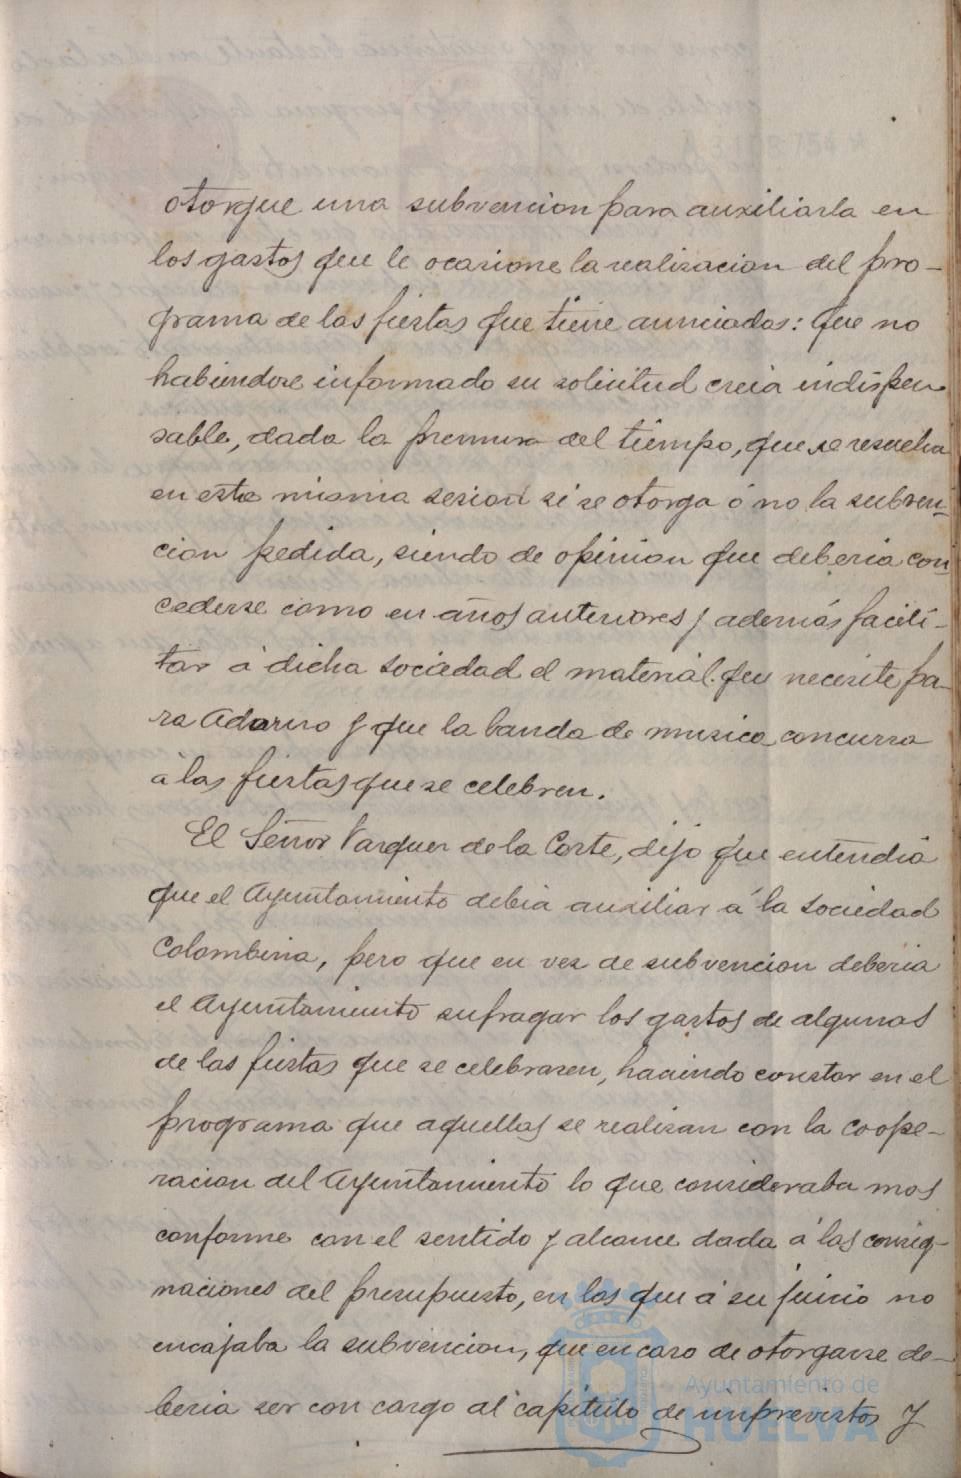 otorgue una subvencion para auxiliarla en
los gastos que le ocasione la realizacion del pro-
grama de las fiestas que tiene anunciadas: que no
habiendose informado su solicitud creia indispen
sable, dada la premura del tiempo, que se resuelva
en esta misma sesion si se otorga ó no la subven-
cion pedida, siendo de opinion que deberia con-
cederse como en años anteriores y además facili-
tar á dicha sociedad el material que necesite pa-
ra adorno y que la banda de musica concurra
á las fiestas que se celebren.
El Señor Vazquez de la Corte, dijo que entendia
que el Ayuntamiento debia auxiliar á la sociedad
Colombina, pero que en vez de subvencion deberia
el Ayuntamiento sufragar los gastos de algunas
de las fiestas que se celebrasen, haciendo constar en el
programa que aquellas se realizan con la coope-
racion del Ayuntamiento lo que consideraba mas
conforme con el sentido y alcance dada á las consig-
naciones del presupuesto, en los que á su juicio no
encajaba la subvencion, que en caso de otorgarse de-
beria ser con cargo al capitulo de imprevistos y
Ayuntamiento de
HUELVA